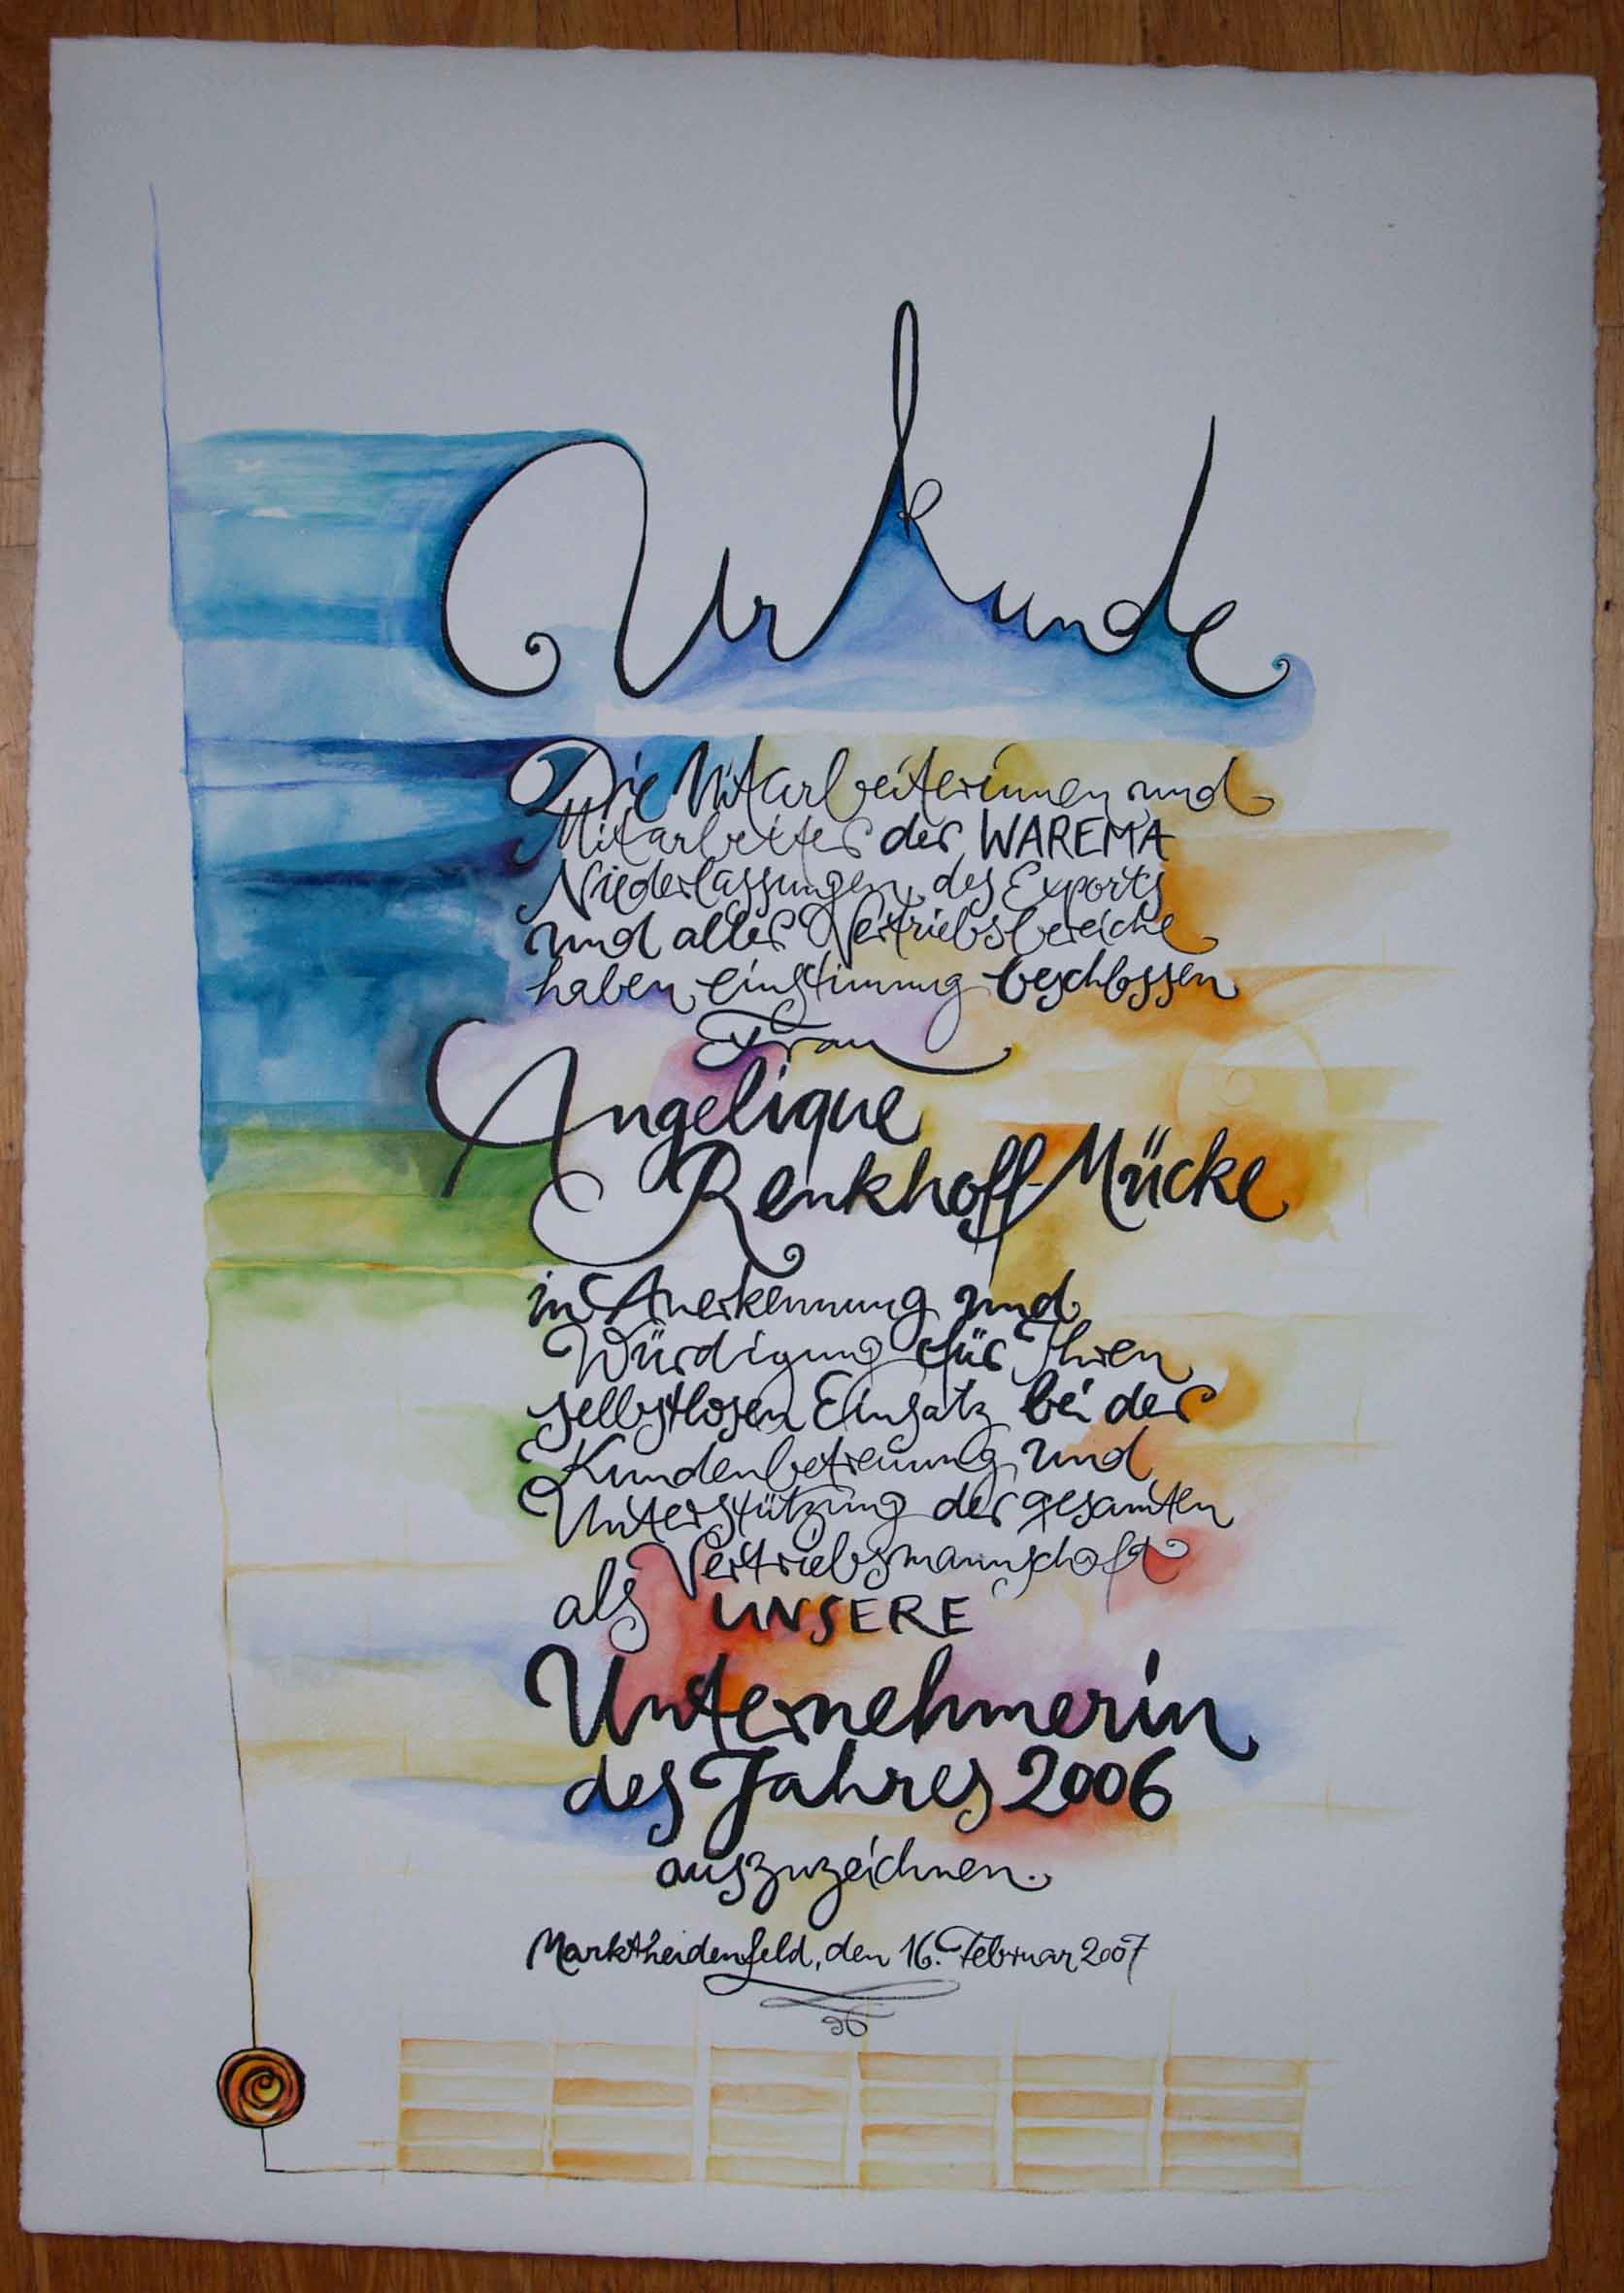 Urkunde
Die Mitarbeiterinnen und
Mitarbeiter der WAREMA
Niederlassungen, des Exports
und aller Vertriebsbereiche
haben einstimmig beschlossen
Frau
Angelique
Renkhoff-Mücke
in Anerkennung und
Würdigung für Ihren
selbstlosen Einsatz bei der
Kundenbetreuung und
Unterstützung der gesamten
Vertriebsmannschaft
als UNSERE
Unternehmerin
des Jahres 2006
auszuzeichnen.
Marktheidenfeld, den 16. Februar 2007